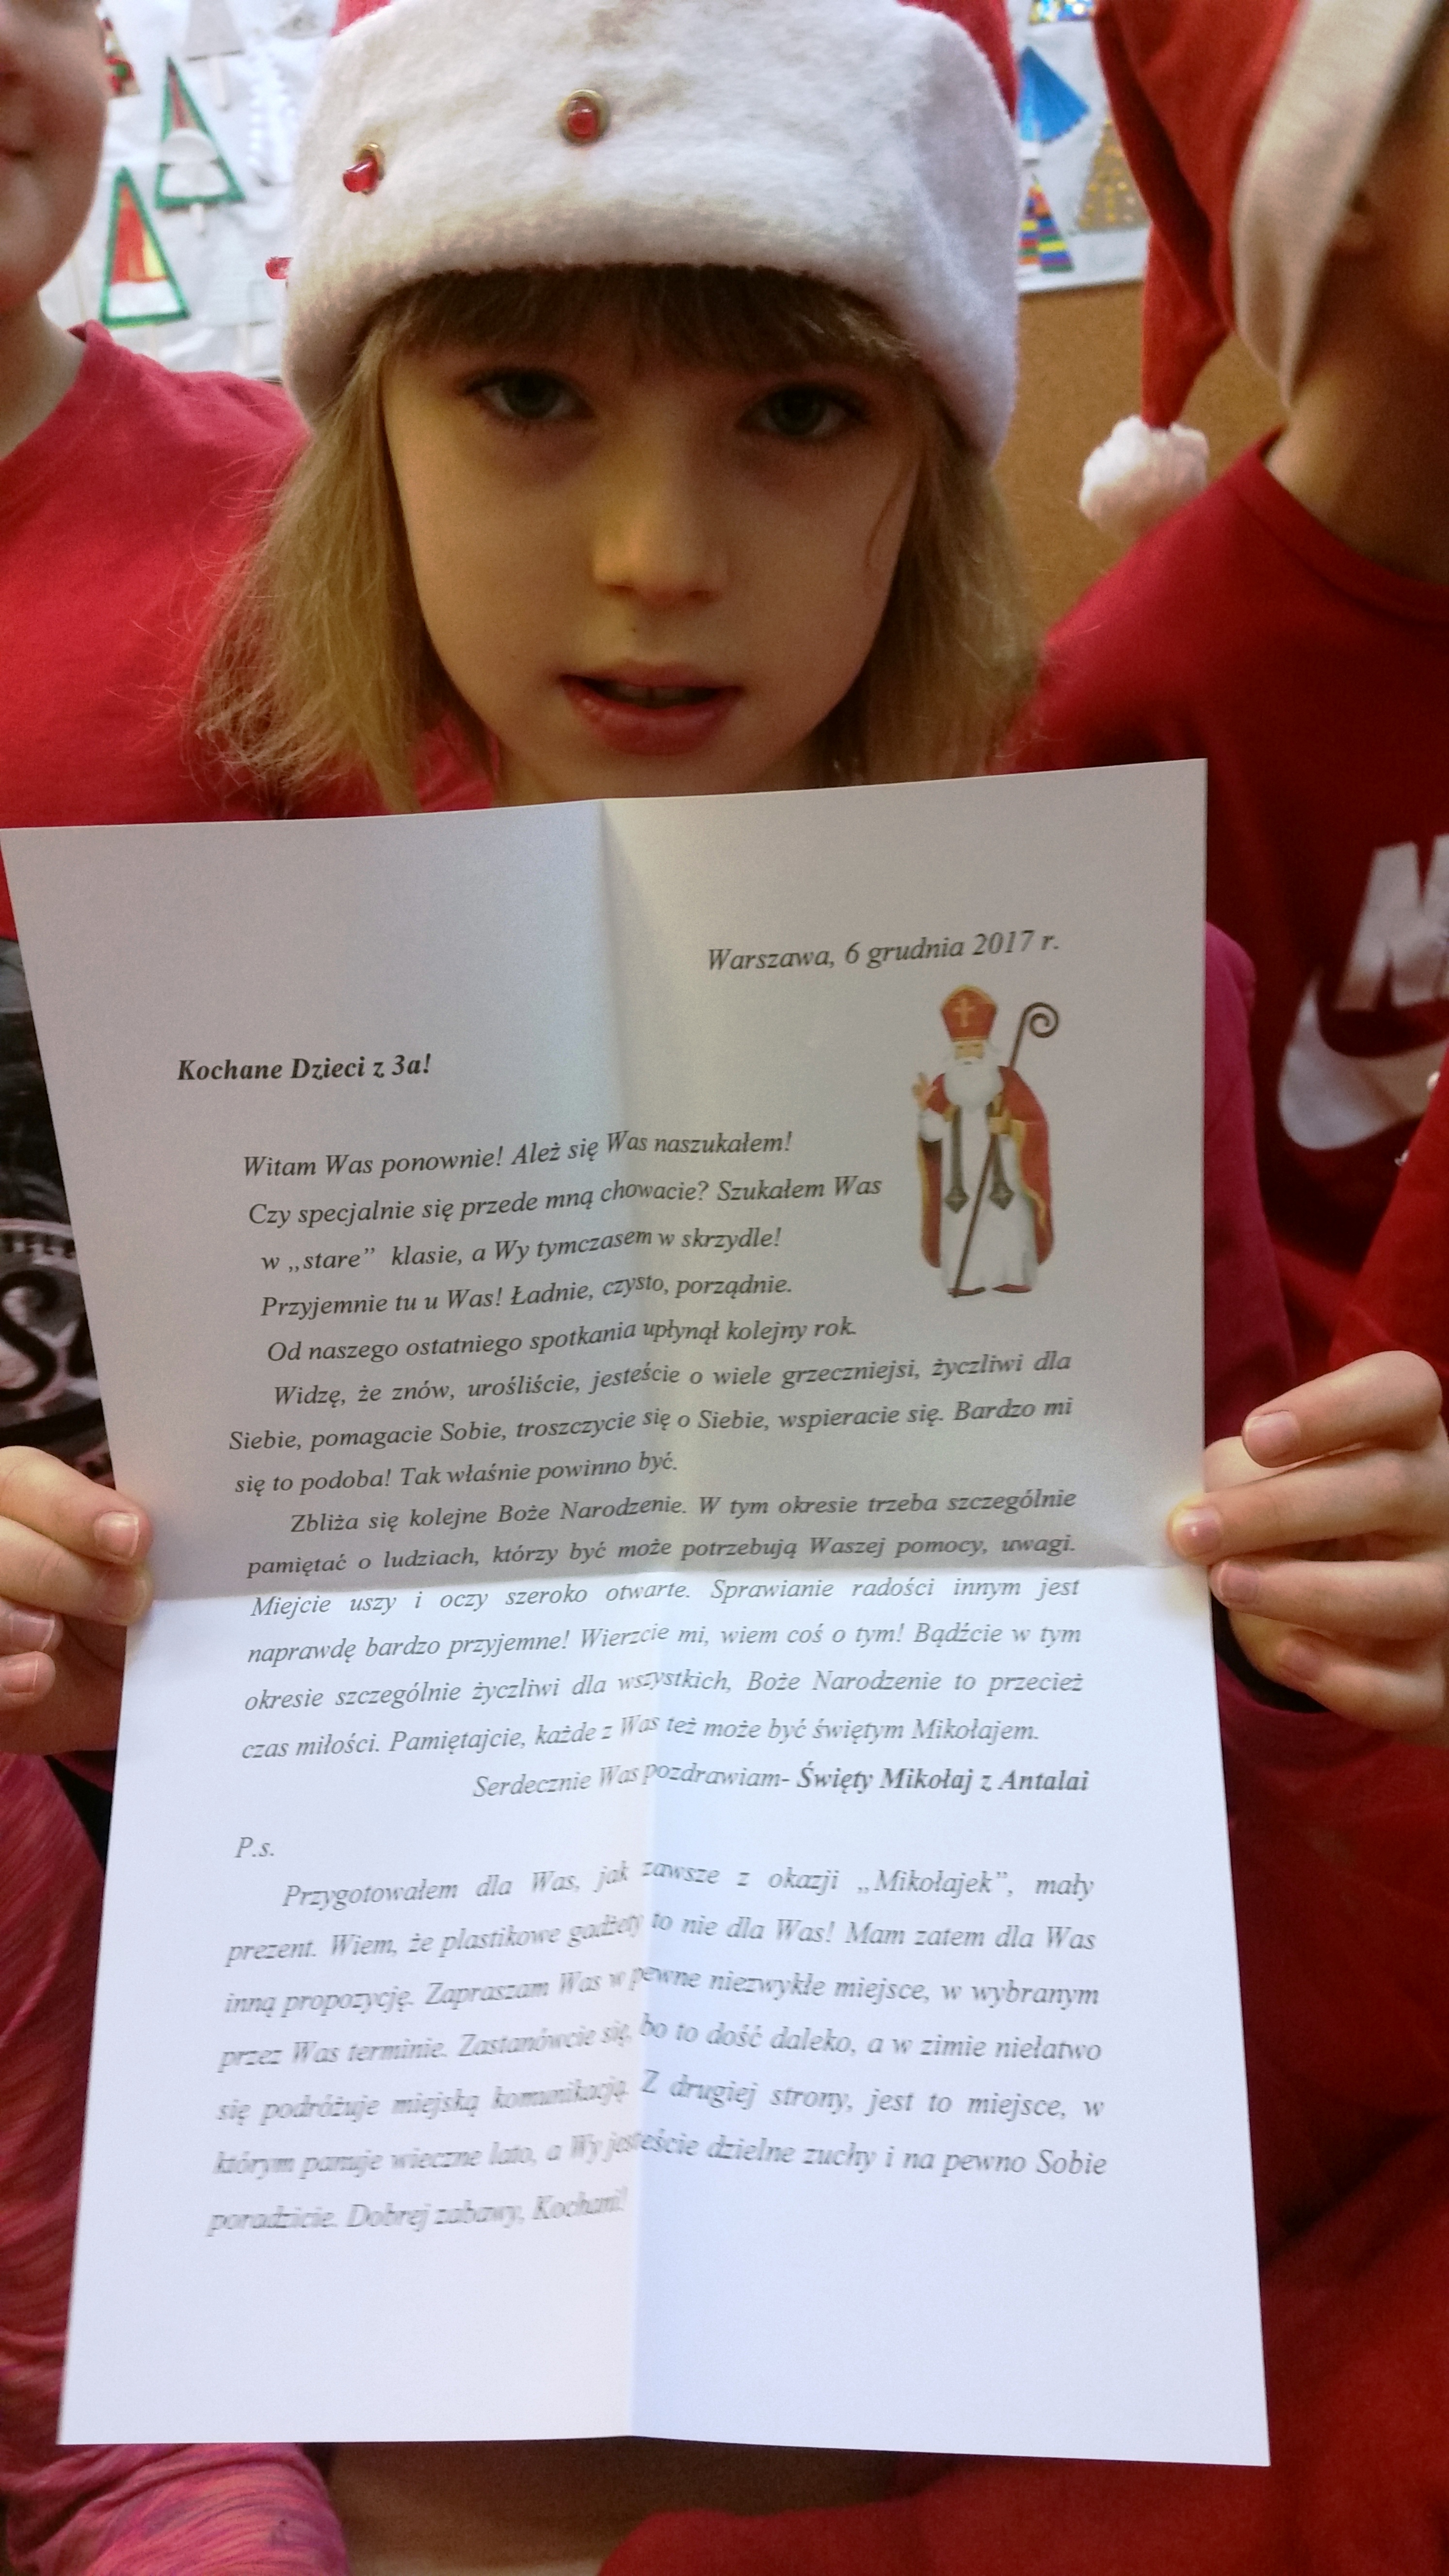 Warszawa, 6 grudnia 2017 r.
Kochane Dzieci z 3a!
Witam Was ponownie! Ależ się Was naszukałem!
Czy specjalnie się przede mną chowacie? Szukałem Was
w „stare” klasie, a Wy tymczasem w skrzydle!
Przyjemnie tu u Was! Ładnie, czysto, porządnie.
Od naszego ostatniego spotkania upłynął kolejny rok.
Widzę, że znów, urośliście, jesteście o wiele grzeczniejsi, życzliwi dla
Siebie, pomagacie Sobie, troszczycie się o Siebie, wspieracie się. Bardzo mi
się to podoba! Tak właśnie powinno być.
Zbliża się kolejne Boże Narodzenie. W tym okresie trzeba szczególnie
pamiętać o ludziach, którzy być może potrzebują Waszej pomocy, uwagi.
Miejcie uszy i oczy szeroko otwarte. Sprawianie radości innym jest
naprawdę bardzo przyjemne! Wierzcie mi, wiem coś o tym! Bądźcie w tym
okresie szczególnie życzliwi dla wszystkich, Boże Narodzenie to przecież
czas miłości. Pamiętajcie, każde z Was też może być świętym Mikołajem.
Serdecznie Was pozdrawiam- Święty Mikołaj z Antalai
P.s.
Przygotowałem dla Was, jak zawsze z okazji „Mikołajek”, mały
prezent. Wiem, że plastikowe gadżety to nie dla Was! Mam zatem dla Was
inną propozycję. Zapraszam Was w pewne niezwykłe miejsce, w wybranym
przez Was terminie. Zastanówcie się, bo to dość daleko, a w zimie niełatwo
się podróżuje miejską komunikacją. Z drugiej strony, jest to miejsce, w
którym panuje wieczne lato, a Wy jesteście dzielne zuchy i na pewno Sobie
poradzicie. Dobrej zabawy, Kochani!